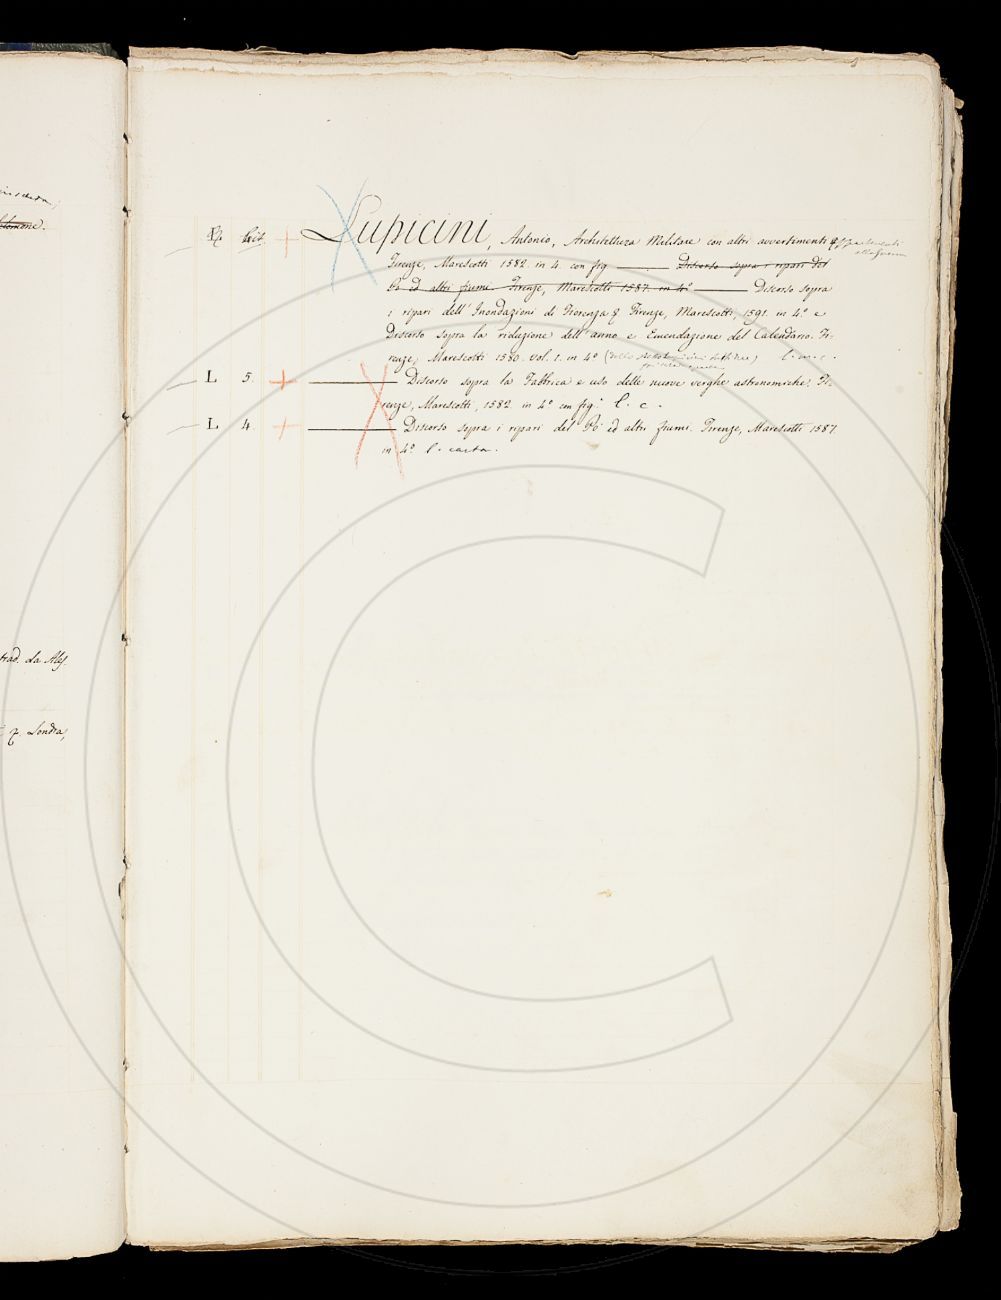 Lupicini, Antonio, Architettura Militare con altri avvertimenti
Firenze, Marescotti 1582. in 4. con fig. ——— Discorso sopra i ripari del
Po ed altri fiumi Firenze, Marescotti 1587. in 4.° ——— Discorso sopra
i ripari dell'Inondazioni di Fiorenza Firenze, Marescotti, 1591. in 4.° e
Discorso sopra la riduzione dell'anno e Emendazione del Calendario. Fi-
renze, Marescotti 1580. vol. 1. in 4.° l. m. c.
L 5. + ——— Discorso sopra la Fabbrica e uso delle nuove verghe astronomiche. Fi-
renze, Marescotti, 1582. in 4.° con fig.e l. c.
L 4. + ——— Discorso sopra i ripari del Po ed altri fiumi. Firenze, Marescotti 1587.
in 4.° l. carta.
trad. da Ales.
Londra,